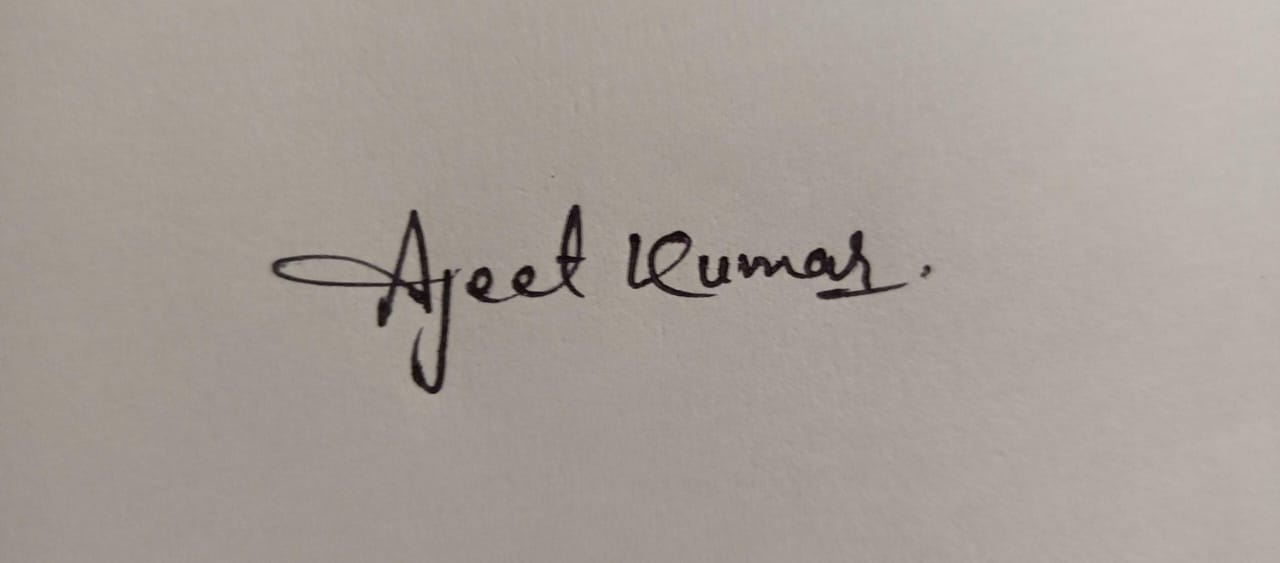 Ajeet Kumar.